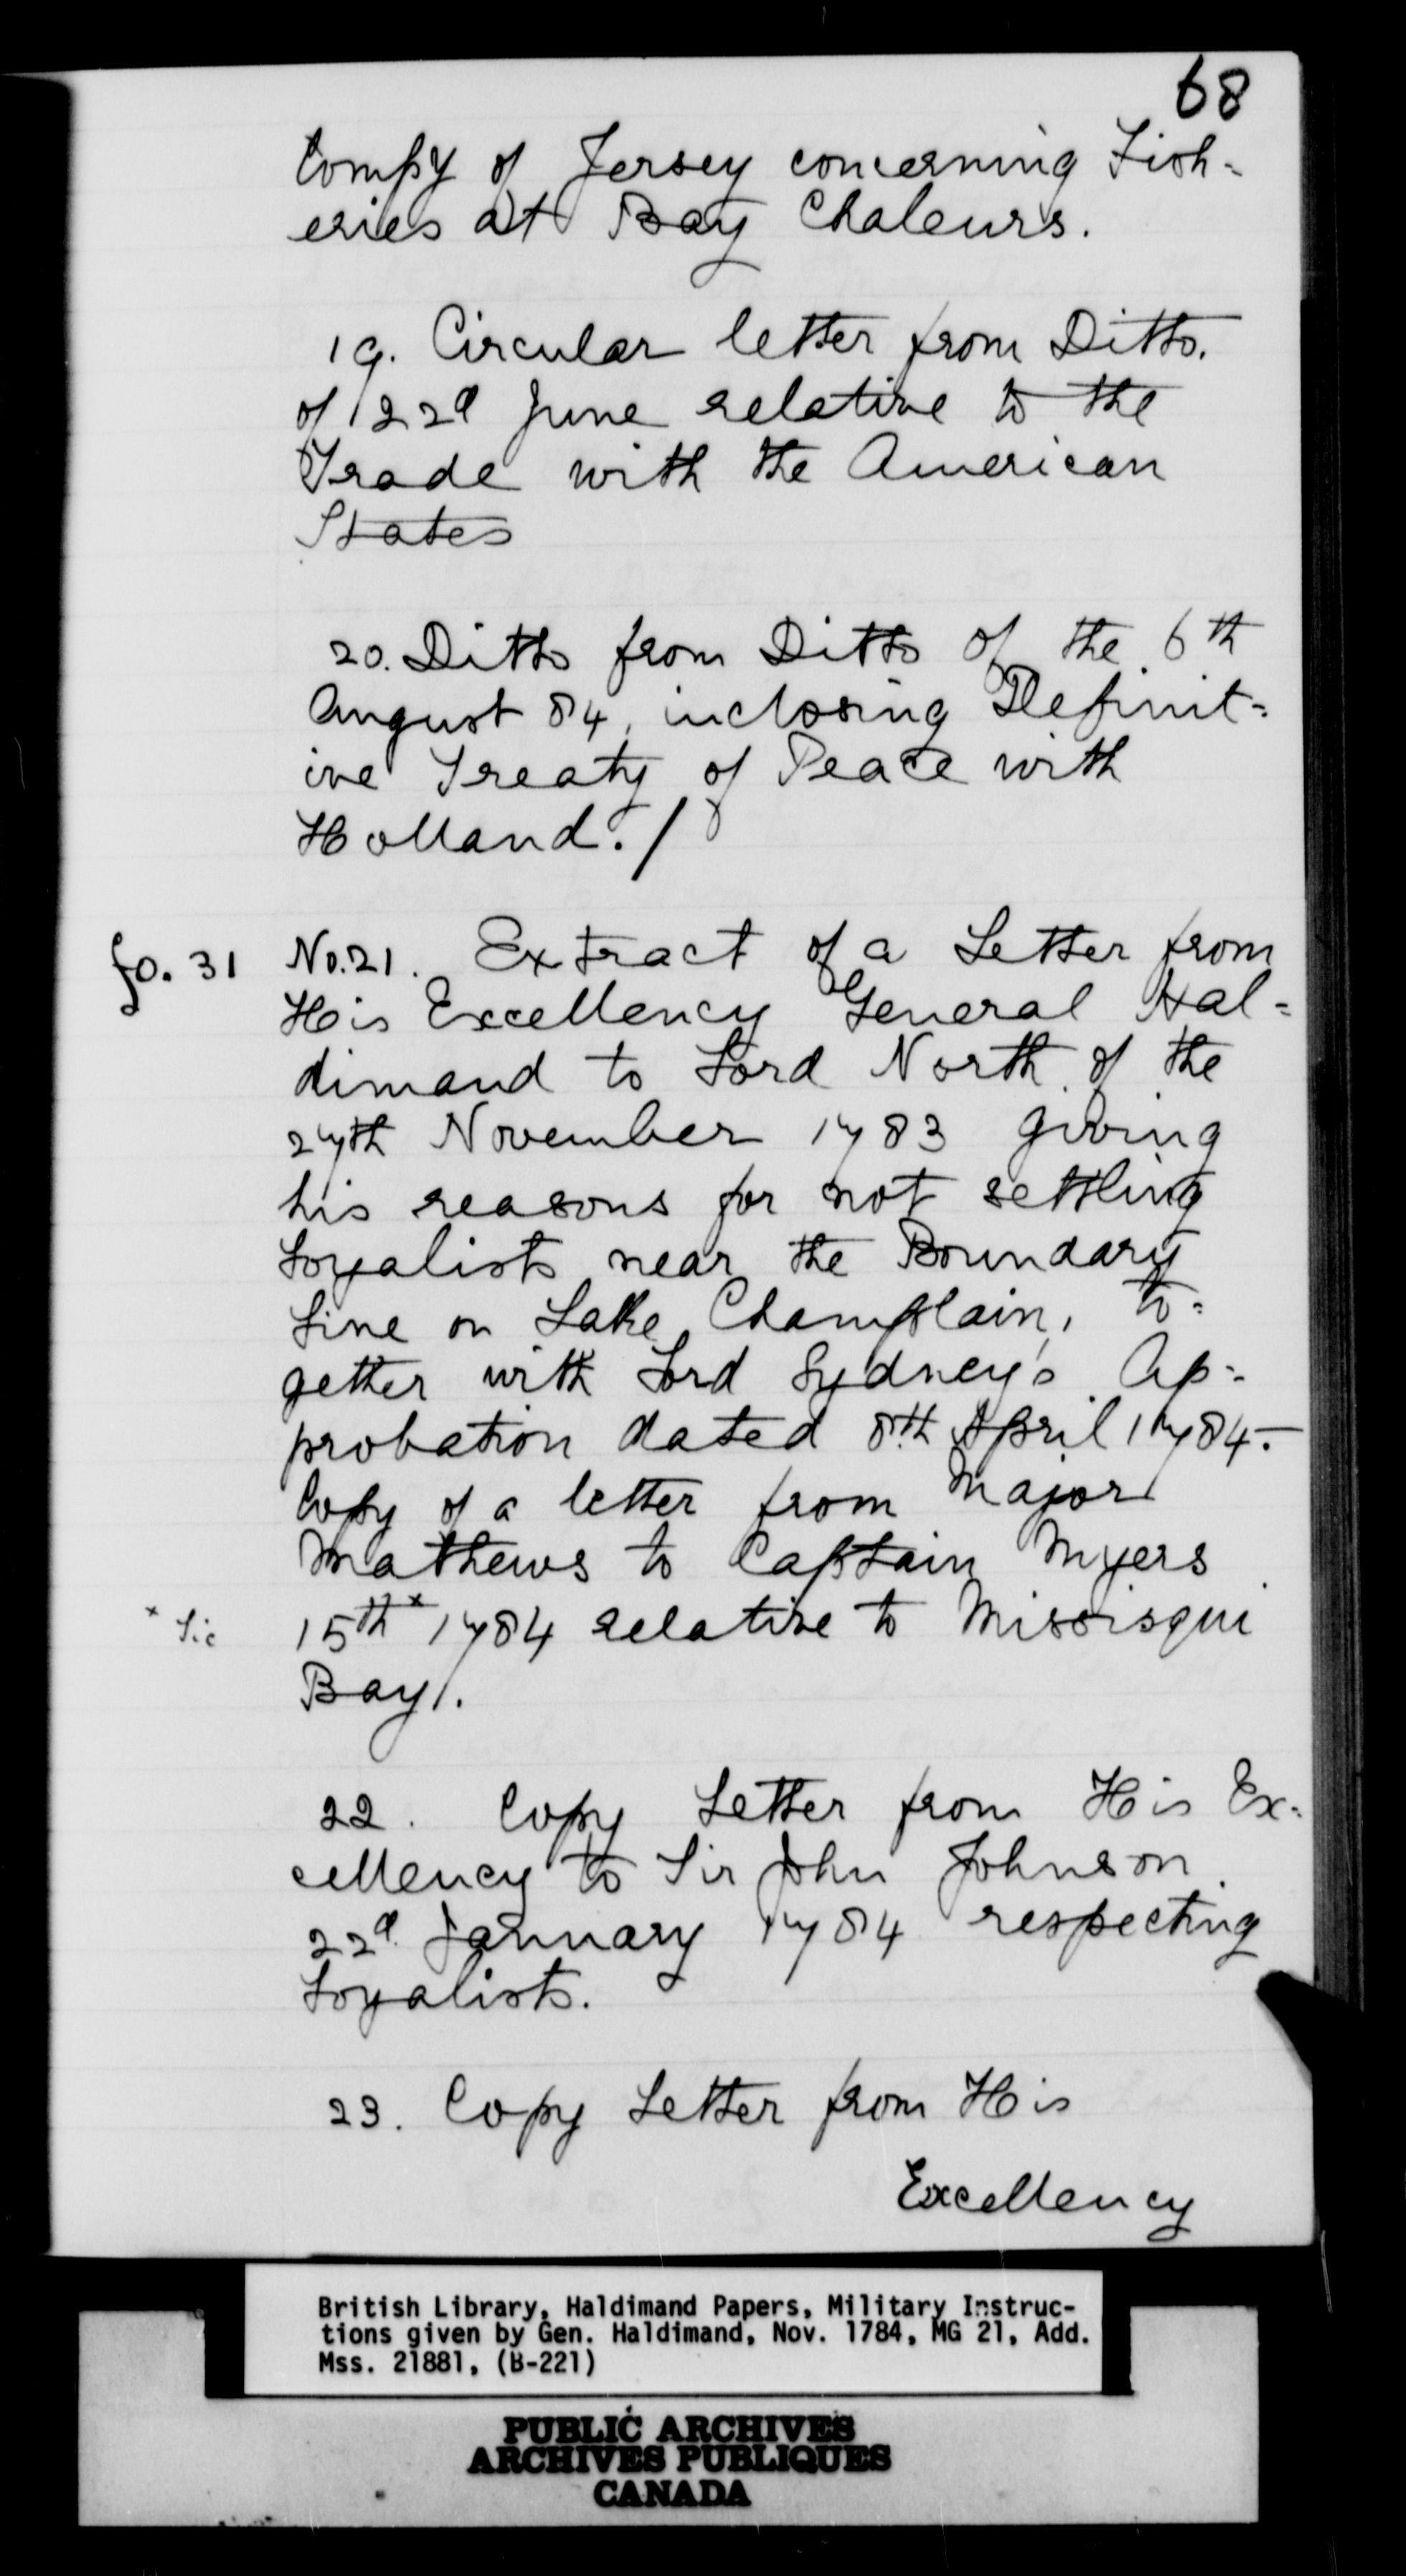 68
Compy of Jersey concerning Fish=
eries at Bay Chaleurs.
19. Circular letter from Ditto.
of 22d June relative to the
Trade with the American
States
20. Ditto from Ditto of the 6th
August 84, inclosing Definit=
ive Treaty of Peace with
Holland./
fo. 31 No.21. Extract of a Letter from
His Excellency General Hal=
dimand to Lord North of the
27th November 1783 giving
his reasons for not settling
Loyalists near the Boundary
Line on Lake Champlain, to=
gether with Lord Sydney's Ap=
probation dated 8th April 1784.-
Copy of a letter from Major
Mathews to Captain Myers
* Sic 15th* 1784 relative to Missisqui
Bay/.
22. Copy Letter from His Ex=
cellency to Sir John Johnson
22d January 1784 respecting
Loyalists.
23. Copy Letter from His
Excellency
British Library, Haldimand Papers, Military Instruc-
tions given by Gen. Haldimand, Nov. 1784, MG 21, Add.
Mss. 21881, (B-221)
PUBLIC ARCHIVES
ARCHIVES PUBLIQUES
CANADA